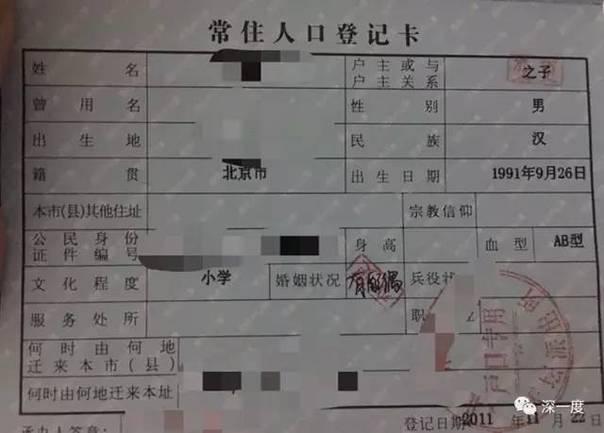 常住人口登记卡
姓名 户主或与户主关系 之子
曾用名 性别 男
出生地 民族 汉
籍贯 北京市 出生日期 1991年9月26日
本市(县)其他住址 宗教信仰
公民身份证件编号 身高 血型 AB型
文化程度 小学 婚姻状况 有配偶 兵役状
服务处所 职
何时由何地迁来本市(县)
何时由何地迁来本址
承办人签章: 登记日期: 2011年11月22日
户口专用
深一度